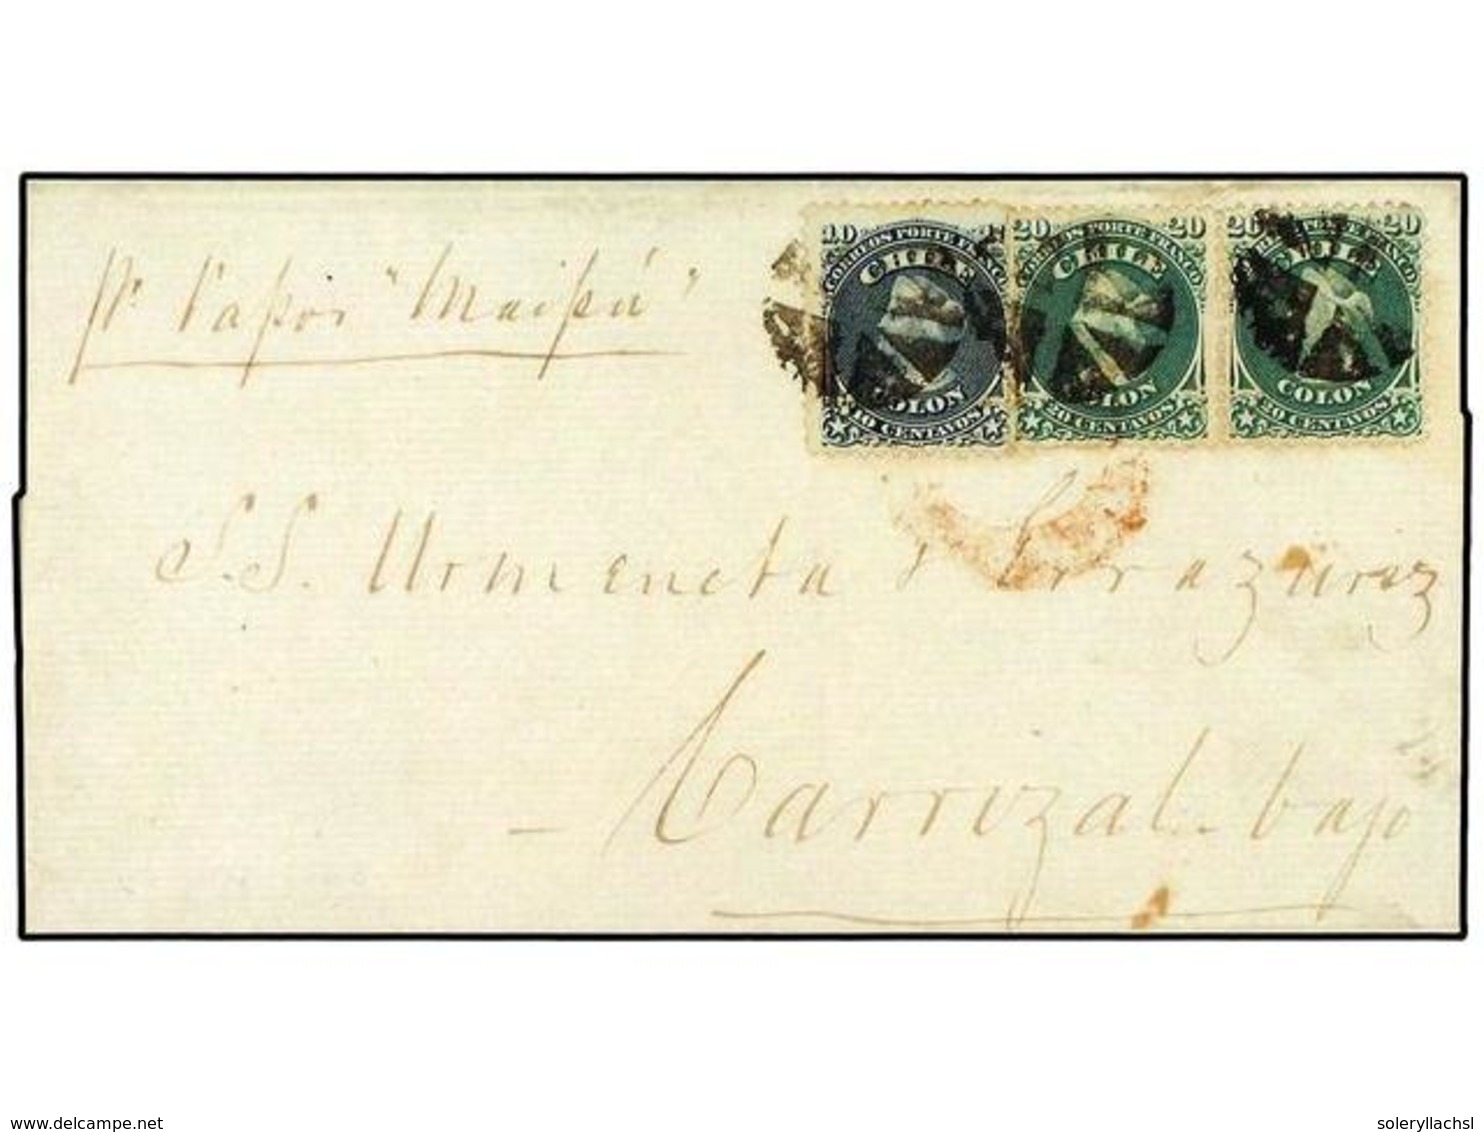 pr Vapor "Maipú"
10
CORREOS PORTE FRANCO
CHILE
COLON
10 CENTAVOS
20 20
CORREOS PORTE FRANCO
CHILE
COLON
20 CENTAVOS
20 20
PORTE FRANCO
CHILE
COLON
20 CENTAVOS
S.S. Urmeneta & Errazuriz
Carrizal-bajo
delcampe.net
soleryllachsl